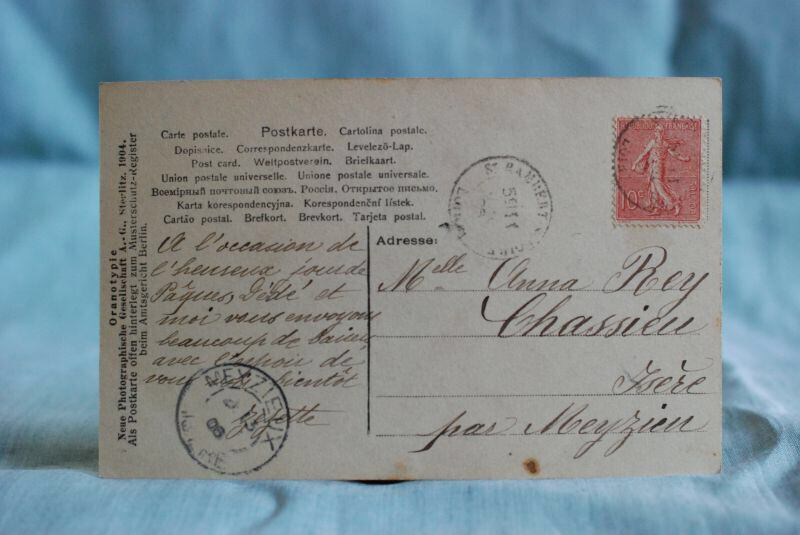 Carte postale. Postkarte. Cartolina postale.
Dopisnice. Correspondenzkarte. Levelező-Lap.
Post card. Weltpostverein. Briefkaart.
Union postale universelle. Unione postale universale.
Всемірный почтовый союзъ. Россія. Открытое письмо.
Karta korespondencyjna. Korespondenční lístek.
Cartão postal. Brefkort. Brevkort. Tarjeta postal.
Oranotypie
Neue Photographische Gesellschaft A.-G., Steglitz, 1904.
Als Postkarte offen hinterlegt zum Musterschutz-Register
beim Amtsgericht Berlin.
A l'occasion de
l'heureux jour de
Pâques, Dédé et
moi vous envoyons
beaucoup de
avec l'espoir de
vous bientôt
Adresse:
Melle Anna Rey
Chassieu
Isère
par Meyzieu
ST RAMBERT
LOIRE
10c
MEYZIEUX